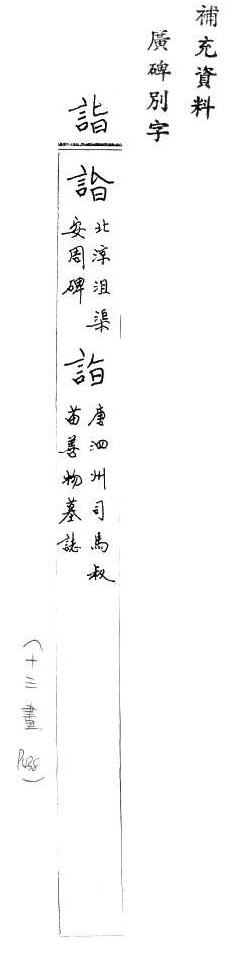 補充資料
廣碑別字
詣
詣
北涼沮渠
安周碑
詣
唐泗州司馬叔
苗善物墓誌
(十三畫 P438)